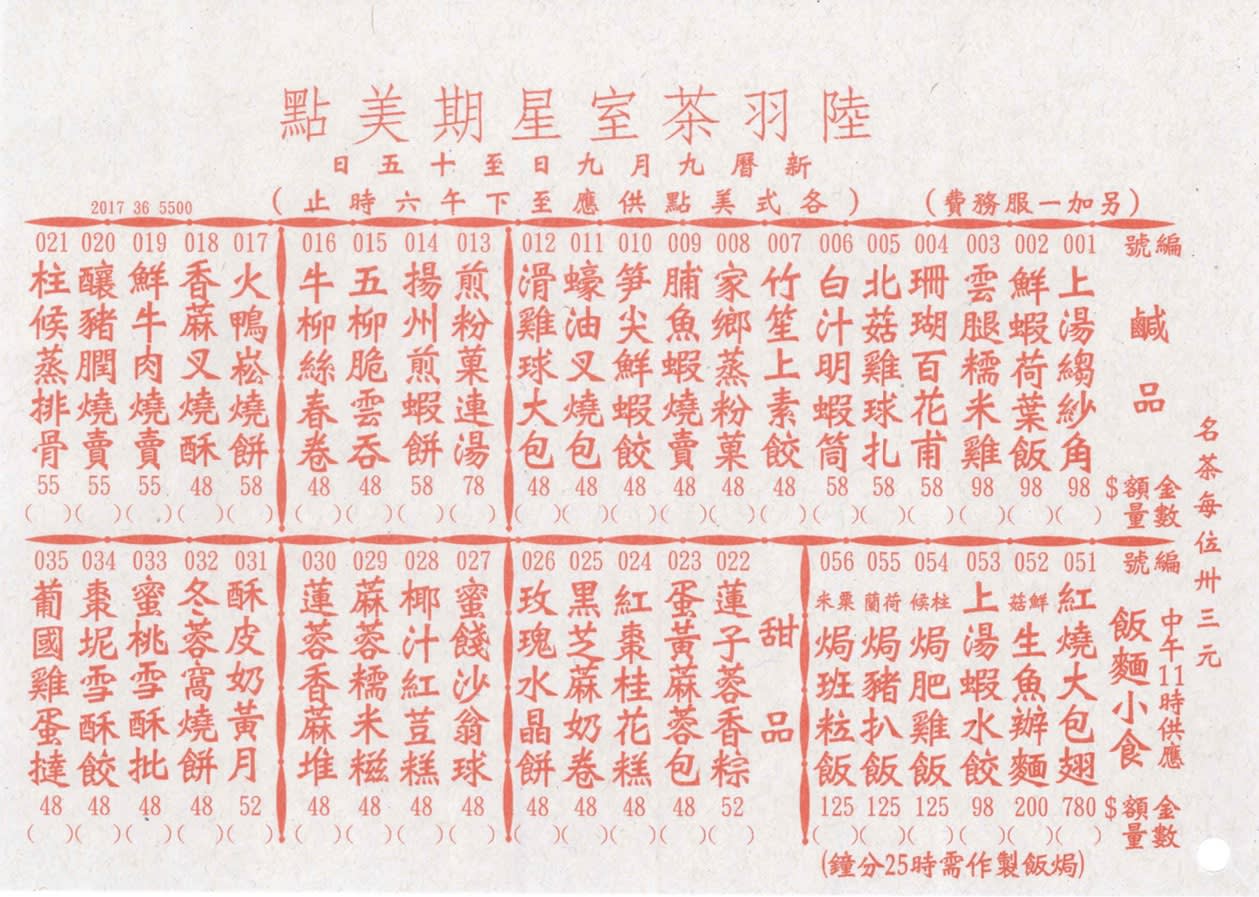 陸羽茶室星期美點
新曆九月九日至十五日
(各式美點供應至下午六時止)
(另加一服務費)
2017 36 5500
名茶每位卅三元
編號
鹹品
金額$
數量
001 上湯縐紗角 98 ( )
002 鮮蝦荷葉飯 98 ( )
003 雲腿糯米雞 98 ( )
004 珊瑚百花甫 58 ( )
005 北菇雞球扎 58 ( )
006 白汁明蝦筒 58 ( )
007 竹笙上素餃 48 ( )
008 家鄉蒸粉菓 48 ( )
009 脯魚蝦燒賣 48 ( )
010 笋尖鮮蝦餃 48 ( )
011 蠔油叉燒包 48 ( )
012 滑雞球大包 48 ( )
013 煎粉菓連湯 78 ( )
014 揚州煎蝦餅 58 ( )
015 五柳脆雲吞 48 ( )
016 牛柳絲春卷 48 ( )
017 火鴨崧燒餅 58 ( )
018 香蔴叉燒酥 48 ( )
019 鮮牛肉燒賣 55 ( )
020 釀豬膶燒賣 55 ( )
021 柱候蒸排骨 55 ( )
編號
中午11時供應
飯麵小食
金額$
數量
051 紅燒大包翅 780 ( )
052 鮮菇生魚辦麵 200 ( )
053 上湯蝦水餃 98 ( )
054 柱候焗肥雞飯 125 ( )
055 荷蘭焗豬扒飯 125 ( )
056 粟米焗班粒飯 125 ( )
(焗飯製作需時25分鐘)
甜品
022 蓮子蓉香粽 52 ( )
023 蛋黃蔴蓉包 48 ( )
024 紅棗桂花糕 48 ( )
025 黑芝蔴奶卷 48 ( )
026 玫瑰水晶餅 48 ( )
027 蜜餞沙翁球 48 ( )
028 椰汁紅荳糕 48 ( )
029 蔴蓉糯米糍 48 ( )
030 蓮蓉香蔴堆 48 ( )
031 酥皮奶黃月 52 ( )
032 冬蓉窩燒餅 48 ( )
033 蜜桃雪酥批 48 ( )
034 棗坭雪酥餃 48 ( )
035 葡國雞蛋撻 48 ( )